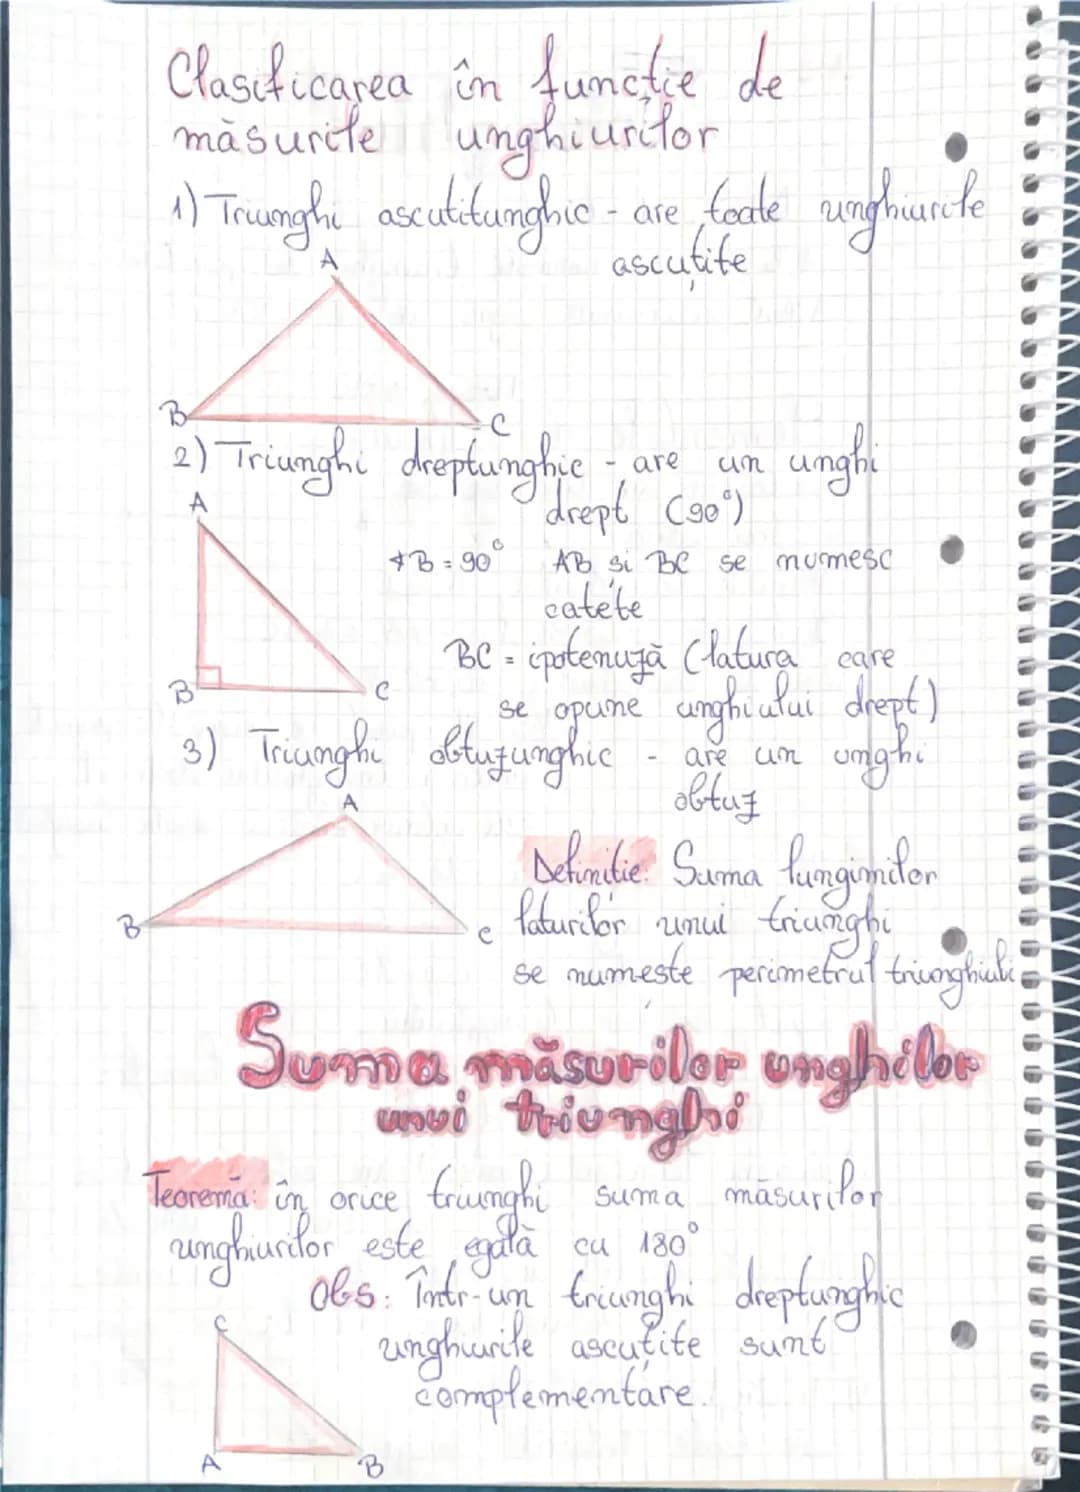 Clasificarea în funcție de
măsurile unghiurilor
1) Triunghi ascutitunghic - are toate unghiurile
ascuțite
A
B
C
2) Triunghi dreptunghic - are un unghi
drept (90°)
A
∢B = 90° AB și BC se numesc
catete
BC = ipotenuză (latura care
B C
se opune unghiului drept)
3) Triunghi obtuzunghic - are un unghi
obtuz
A
Definiție: Suma lungimilor
B C laturilor unui triunghi
se numește perimetrul triunghiului
Suma măsurilor unghilor
unui triunghi
Teoremă: în orice triunghi suma măsurilor
unghiurilor este egală cu 180°
Obs: Într-un triunghi dreptunghic
C
unghiurile ascuțite sunt
complementare.
A B